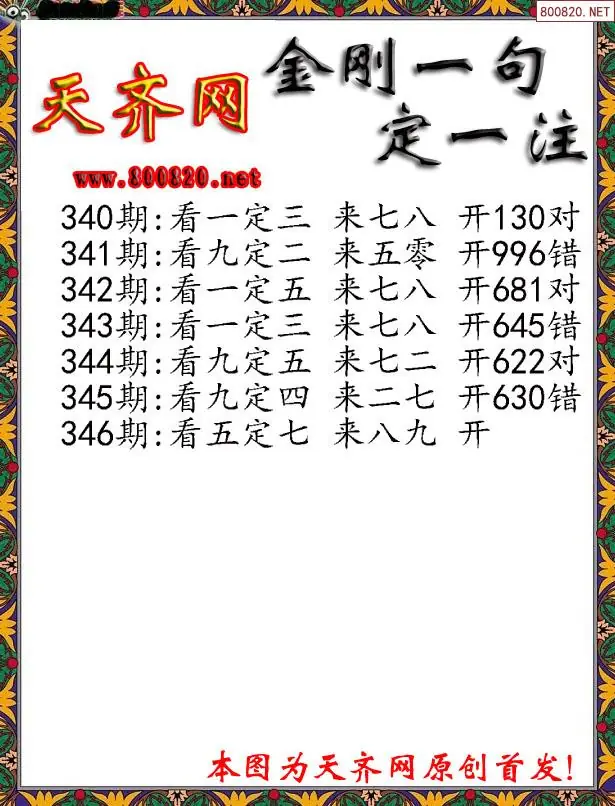 800820.NET
金刚一句
天齐网
定一注
www.800820.net
340期:看一定三 来七八 开130对
341期:看九定二 来五零 开996错
342期:看一定五 来七八 开681对
343期:看一定三 来七八 开645错
344期:看九定五 来七二 开622对
345期:看九定四 来二七 开630错
346期:看五定七 来八九 开
本图为天齐网原创首发!